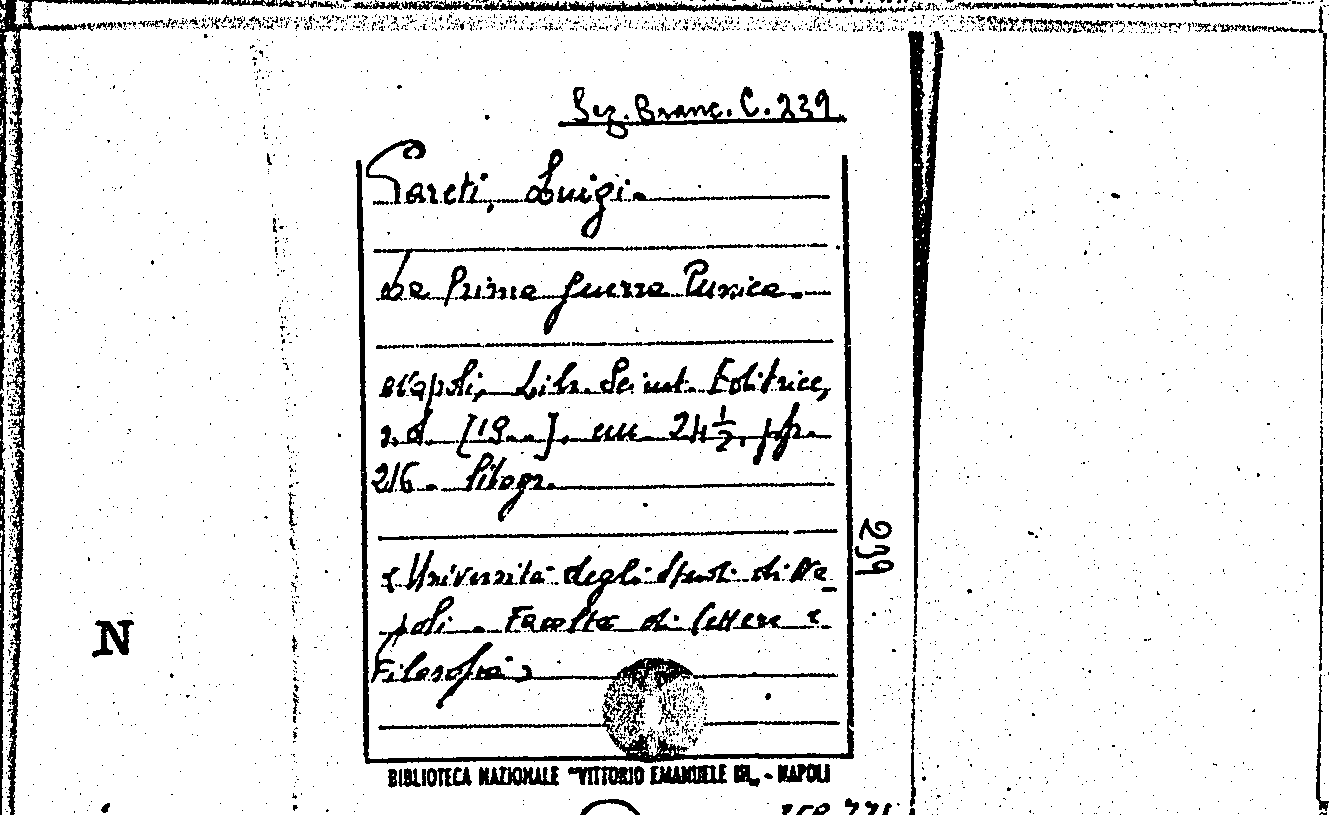 Sez. Branc. C. 239
Pareti, Luigi.
La Prima guerra Punica.
Napoli, Libr. Scient. Editrice,
s.d. [19..], cm. 24½, pp.
216. litogr.
239
«Università degli Studi di Na-
poli. Facoltà di lettere e
Filosofia»
N
BIBLIOTECA NAZIONALE "VITTORIO EMANUELE III" - NAPOLI